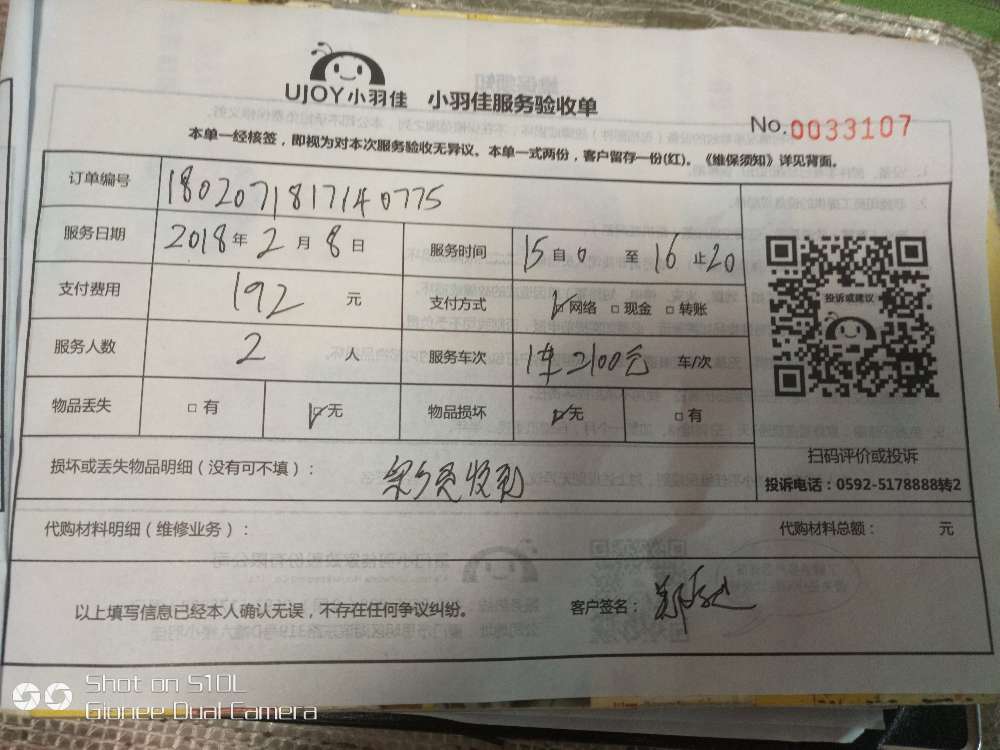 UJOY小羽佳 小羽佳服务验收单
No.0033107
本单一经核签，即视为对本次服务验收无异议。本单一式两份，客户留存一份(红)。《维保须知》详见背面。
订单编号 1802071817140775
服务日期 2018年2月8日 服务时间 15自0至16止20
支付费用 192元 支付方式 网络 现金 转账
投诉或建议
服务人数 2人 服务车次 1车2100元 车/次
物品丢失 有 无 物品损坏 无 有
扫码评价或投诉
损坏或丢失物品明细（没有可不填）：
投诉电话：0592-5178888转2
代购材料明细（维修业务）： 代购材料总额： 元
以上填写信息已经本人确认无误，不存在任何争议纠纷。 客户签名：
Shot on S10L
Gionee Dual Camera